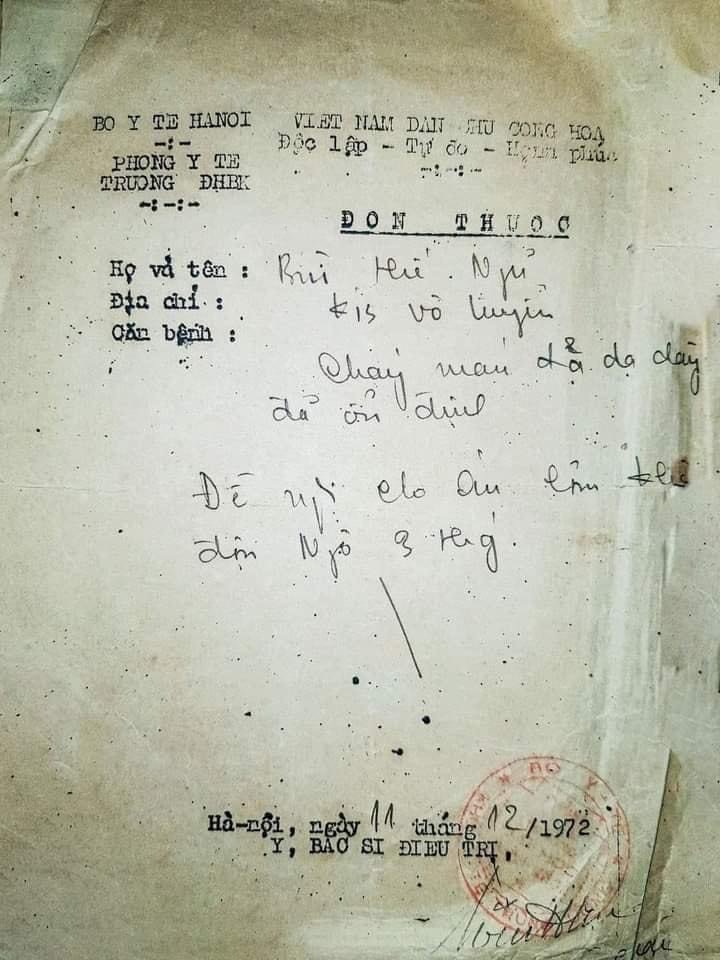 BO Y TE HANOI
-:-
PHONG Y TE
TRUONG ĐHBK
-:-:-
VIET NAM DAN CHU CONG HOA
Độc lập - Tự do - Hạnh phúc
-:-:-
ĐON THUOC
Họ và tên : Bùi thế Ngũ
Địa chỉ : K15 vô tuyến
Căn bệnh :
Chảy máu dạ dày
đã ổn định
Đề nghị cho ăn cơm
độn Ngô 3 thg.
Hà-nội, ngày 11 tháng 12/1972
Y, BAC SI ĐIEU TRI,
BO Y TE